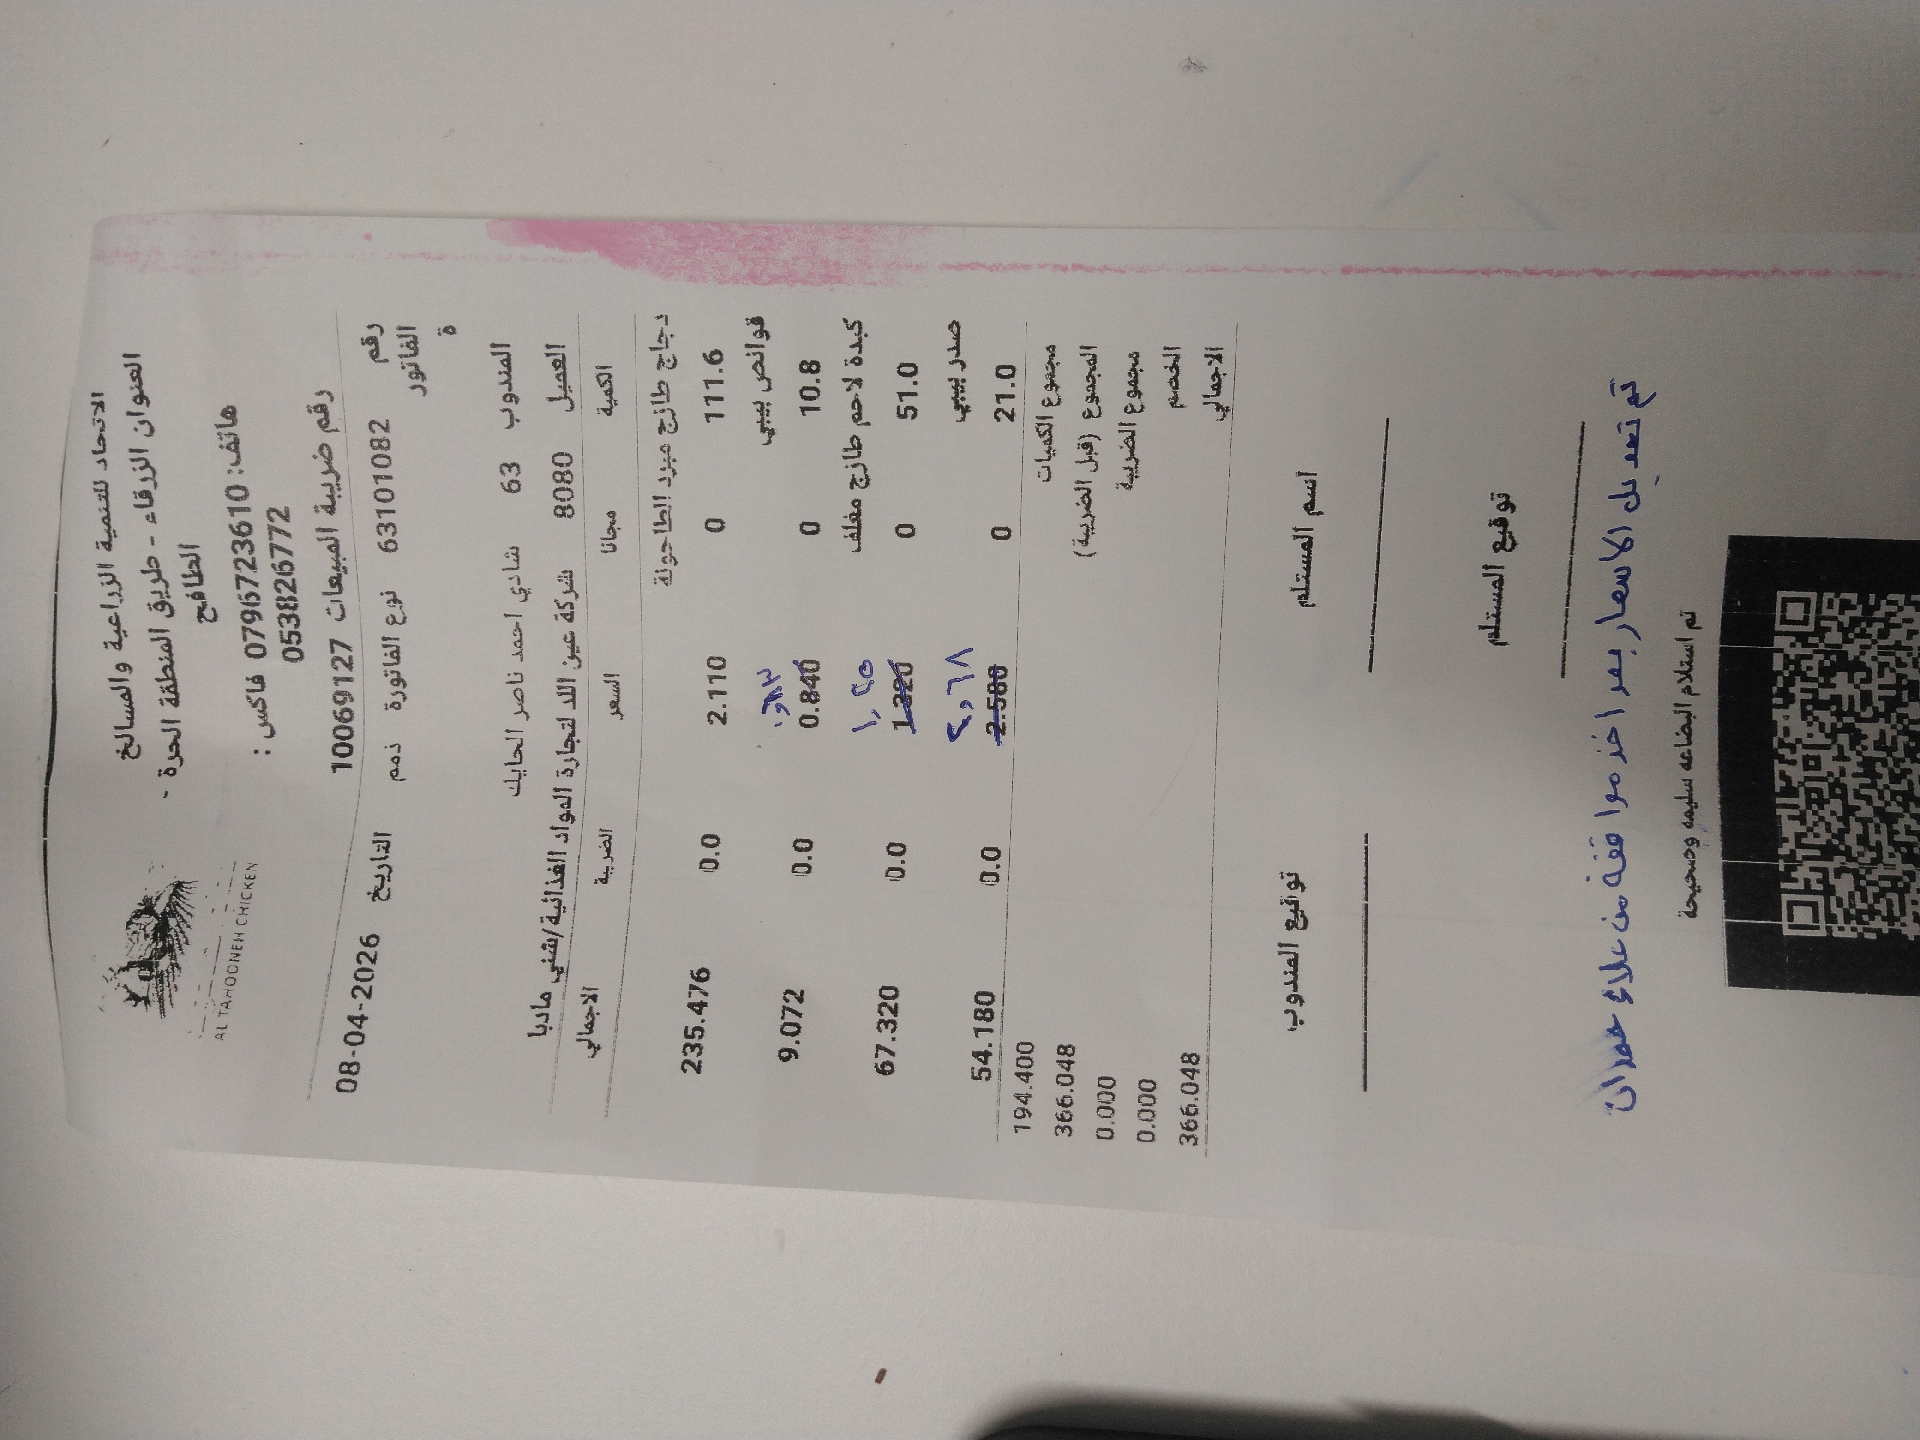 AL TAHOONEH CHICKEN
الاتحاد للتنمية الزراعية والمسالخ
العنوان الزرقاء - طريق المنطقة الحرة -
الطافح
هاتف: 0796723610 فاكس :
053826772
رقم ضريبة المبيعات 10069127
رقم الفاتورة 63101082 نوع الفاتورة ذمم التاريخ 08-04-2026
المندوب 63 شادي احمد ناصر الحايك
العميل 8080 شركة عين اللا لتجارة المواد الغذائية/شفي مادبا
الكمية مجانا السعر الضريبة الاجمالي
دجاج طازج مبرد الطاحونة
111.6 0 2.110 0.0 235.476
قوانص بيبي
٠,٨٣
10.8 0 0.840 0.0 9.072
كبدة لاحم طازج مغلف
١,٢٥
51.0 0 1.320 0.0 67.320
صدر بيبي
٢,٦٨
21.0 0 2.580 0.0 54.180
مجموع الكميات 194.400
المجموع (قبل الضريبة) 366.048
مجموع الضريبة 0.000
الخصم 0.000
الاجمالي 366.048
اسم المستلم توقيع المندوب
توقيع المستلم
تم تعديل الاسعار بعد اخذ موافقة من علاء حمدان
تم استلام البضاعه سليمه وصحيحة